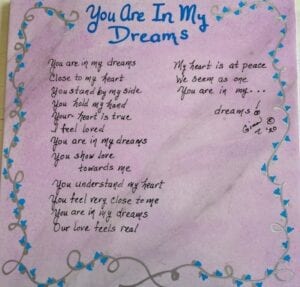 You Are In My
Dreams
You are in my dreams
Close to my heart
You stand by my side
You hold my hand
Your heart is true
I feel loved
You are in my dreams
You show love
towards me
You understand my heart
You feel very close to me
You are in my dreams
Our love feels real
My heart is at peace
We seem as one
You are in my...
dreams!